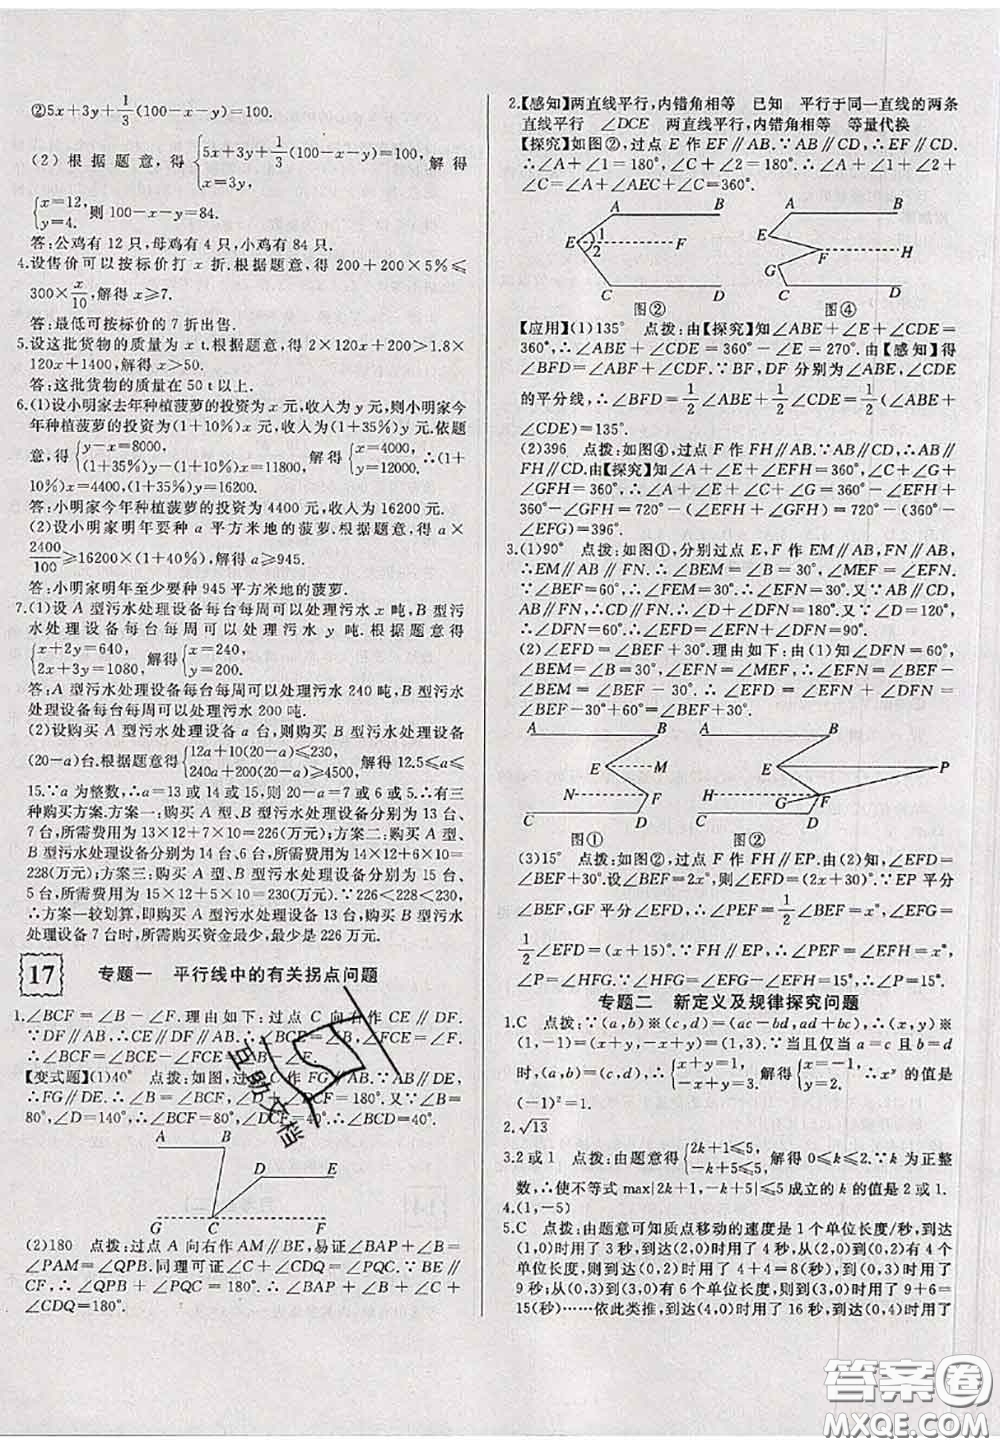 ②5x+3y+1/3(100-x-y)=100.
(2)根据题意,得{5x+3y+1/3(100-x-y)=100, x=3y, 解得
{x=12, y=4. 则100-x-y=84.
答:公鸡有12只,母鸡有4只,小鸡有84只.
4.设售价可以按标价打x折.根据题意,得200+200×5%≤
300×x/10,解得x≥7.
答:最低可按标价的7折出售.
5.设这批货物的质量为x t.根据题意,得2×120x+200>1.8×
120x+1400,解得x>50.
答:这批货物的质量在50 t以上.
6.(1)设小明家去年种植菠萝的投资为x元,收入为y元,则小明家今
年种植菠萝的投资为(1+10%)x元,收入为(1+35%)y元.依题
意,得{y-x=8000, (1+35%)y-(1+10%)x=11800, 解得{x=4000, y=12000. ∴(1+
10%)x=4400,(1+35%)y=16200.
答:小明家今年种植菠萝的投资为4400元,收入为16200元.
(2)设小明家明年要种a平方米地的菠萝.根据题意,得a×
2400/100≥16200×(1+40%),解得a≥945.
答:小明家明年至少要种945平方米地的菠萝.
7.(1)设A型污水处理设备每台每周可以处理污水x吨,B型污
水处理设备每台每周可以处理污水y吨.根据题意得
{x+2y=640, 2x+3y=1080, 解得{x=240, y=200.
答:A型污水处理设备每台每周可以处理污水240吨,B型污水
处理设备每台每周可以处理污水200吨.
(2)设购买A型污水处理设备a台,则购买B型污水处理设备
(20-a)台.根据题意得{12a+10(20-a)≤230, 240a+200(20-a)≥4500, 解得12.5≤a≤
15.∵a为整数,∴a=13或14或15,则20-a=7或6或5.∴有三
种购买方案.方案一:购买A型、B型污水处理设备分别为13台、
7台,所需费用为13×12+7×10=226(万元);方案二:购买A型、
B型污水处理设备分别为14台、6台,所需费用为14×12+6×10=
228(万元);方案三:购买A型、B型污水处理设备分别为15台、
5台,所需费用为15×12+5×10=230(万元).∵226<228<230,
∴方案一较划算,即购买A型污水处理设备13台,购买B型污水
处理设备7台时,所需购买资金最少,最少是226万元.
17 专题一 平行线中的有关拐点问题
1.∠BCF=∠B-∠F.理由如下:过点C向右作CE∥DF.
∵DF∥AB,∴CE∥DF∥AB.∴∠B=∠BCE,∠F=∠FCE.
∴∠BCF=∠BCE-∠FCE=∠B-∠F.
【变式题】(1)40° 点拨:如图,过点C作FG∥AB.∵AB∥DE,
∴FG∥DE.∴∠B=∠BCF,∠D+∠DCF=180°.又∵∠B=
80°,∠D=140°,∴∠BCF=80°,∠DCF=40°.∴∠BCD=40°.
A B
D E
G C F
(2)180 点拨:过点A向右作AM∥BE,易证∠BAP+∠B=
∠PAM=∠QPB.同理可证∠C+∠CDQ=∠PQC.∵BE∥
CF,∴∠QPB+∠PQC=180°.∴∠BAP+∠B+∠C+
∠CDQ=180°.
2.【感知】两直线平行,内错角相等 已知 平行于同一直线的两条
直线平行 ∠DCE 两直线平行,内错角相等 等量代换
【探究】如图②,过点E作EF∥AB.∵AB∥CD,∴EF∥CD.
∴∠A+∠1=180°,∠C+∠2=180°.∴∠A+∠1+∠2+
∠C=∠A+∠AEC+∠C=360°.
A B
E 1 2 F
C D
图②
A B
E
F H
G
C D
图④
【应用】(1)135° 点拨:由【探究】知∠ABE+∠E+∠CDE=
360°,∴∠ABE+∠CDE=360°-∠E=270°.由【感知】得
∠BFD=∠ABF+∠CDF.∵BF,DF分别为∠ABE,∠CDE
的平分线,∴∠BFD=1/2∠ABE+1/2∠CDE=1/2(∠ABE+
∠CDE)=135°.
(2)396 点拨:如图④,过点F作FH∥AB.∵AB∥CD,∴AB∥
FH∥CD.由【探究】知∠A+∠E+∠EFH=360°,∠C+∠G+
∠GFH=360°.∴∠A+∠E+∠C+∠G=360°-∠EFH+
360°-∠GFH=720°-(∠EFH+∠GFH)=720°-(360°-
∠EFG)=396°.
3.(1)90° 点拨:如图①,分别过点E,F作EM∥AB,FN∥AB,
∴EM∥AB∥FN.∴∠B=∠BEM=30°,∠MEF=∠EFN.
又∵AB∥CD,∴FN∥CD.∴∠D+∠DFN=180°.又∵∠D=120°,
∴∠DFN=60°.∴∠EFD=∠EFN+∠DFN=90°.
(2)∠EFD=∠BEF+30°.理由如下:由(1)知∠DFN=60°,
∠BEM=∠B=30°,∠EFN=∠MEF,∴∠EFN=∠BEF-
∠BEM=∠BEF-30°.∴∠EFD=∠EFN+∠DFN=
∠BEF-30°+60°=∠BEF+30°.
A B
E M
N F
C D
图①
A B
E P
H G F
C D
图②
(3)15° 点拨:如图②,过点F作FH∥EP.由(2)知,∠EFD=
∠BEF+30°.设∠BEF=2x°,则∠EFD=(2x+30)°.∵EP平分
∠BEF,GF平分∠EFD,∴∠PEF=1/2∠BEF=x°,∠EFG=
1/2∠EFD=(x+15)°.∵FH∥EP,∴∠PEF=∠EFH=x°,
∠P=∠HFG.∵∠HFG=∠EFG-∠EFH=15°,∴∠P=15°.
专题二 新定义及规律探究问题
1.C 点拨:∵(a,b)※(c,d)=(ac-bd,ad+bc),∴(x,y)※
(1,-1)=(x+y,-x+y)=(1,3).∵当且仅当a=c且b=d
时,(a,b)=(c,d),∴{x+y=1, -x+y=3. 解得{x=-1, y=2. ∴xʸ的值是
(-1)²=1.
2.√13
3.2或1 点拨:由题意得{2k+1≤5, -k+5≤5, 解得0≤k≤2.∵k为正整
数,∴使不等式max|2k+1,-k+5|≤5成立的k的值是2或1.
4.(1,-5)
5.C 点拨:由题意可知质点移动的速度是1个单位长度/秒,到达
(1,0)时用了3秒,到达(2,0)时用了4秒,从(2,0)到(0,2)有
4个单位长度,则到达(0,2)时用了4+4=8(秒),到达(0,3)时用了
9秒;从(0,3)到(3,0)有6个单位长度,则到(3,0)时用了9+6=
15(秒)……依此类推,到达(4,0)时用了16秒,到达(0,4)时用了
互助文档
答案圈
MXQE.COM